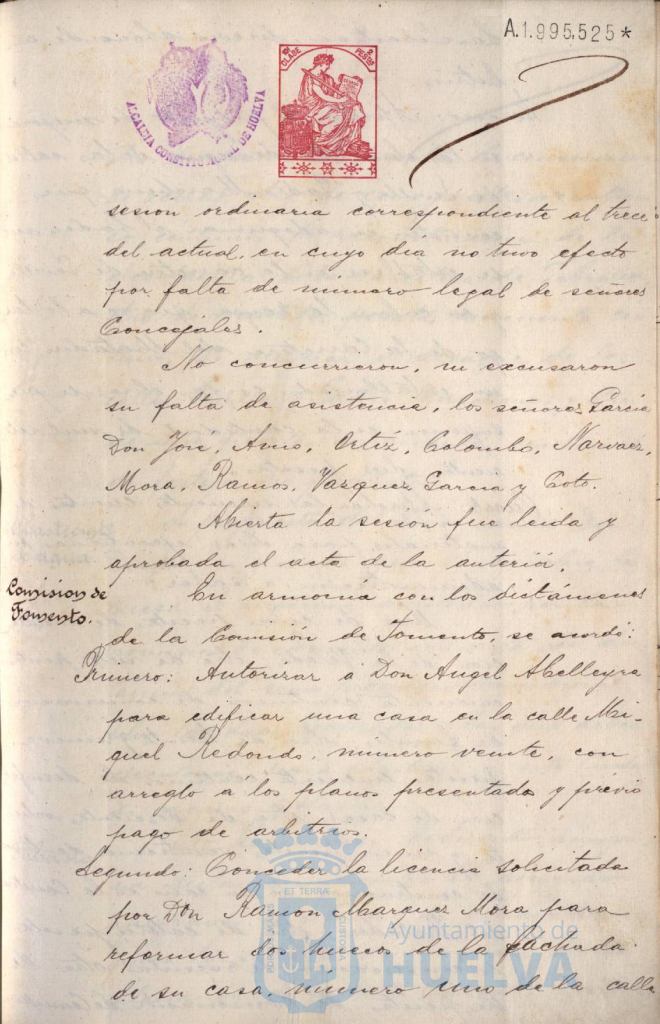 A.1.995,525*
ALCALDIA CONSTITUCIONAL DE HUELVA
CLASE
PESETAS
sesión ordinaria correspondiente al trece
del actual, en cuyo dia no tuvo efecto
por falta de número legal de señores
Concejales.
No concurrieron, ni excusaron
su falta de asistencia, los señores Garcia
Don José, Ortiz, Colombo, Narvaez,
Mora, Ramos, Vazquez Garcia y Coto.
Abierta la sesión fue leida y
aprobada el acta de la anterior.
Comision de
Fomento.
En armonia con los dictámenes
de la Comisión de Fomento, se acordó:
Primero: Autorizar á Don Angel Abelleyra
para edificar una casa en la calle Mi-
guel Redondo, número veinte, con
arreglo á los planos presentados y previo
pago de arbitrios.
Segundo: Conceder la licencia solicitada
por Don Ramon Marquez Mora para
reformar dos huecos de la fachada
de su casa, número uno de la calle
ET TERRÆ
Ayuntamiento de
HUELVA